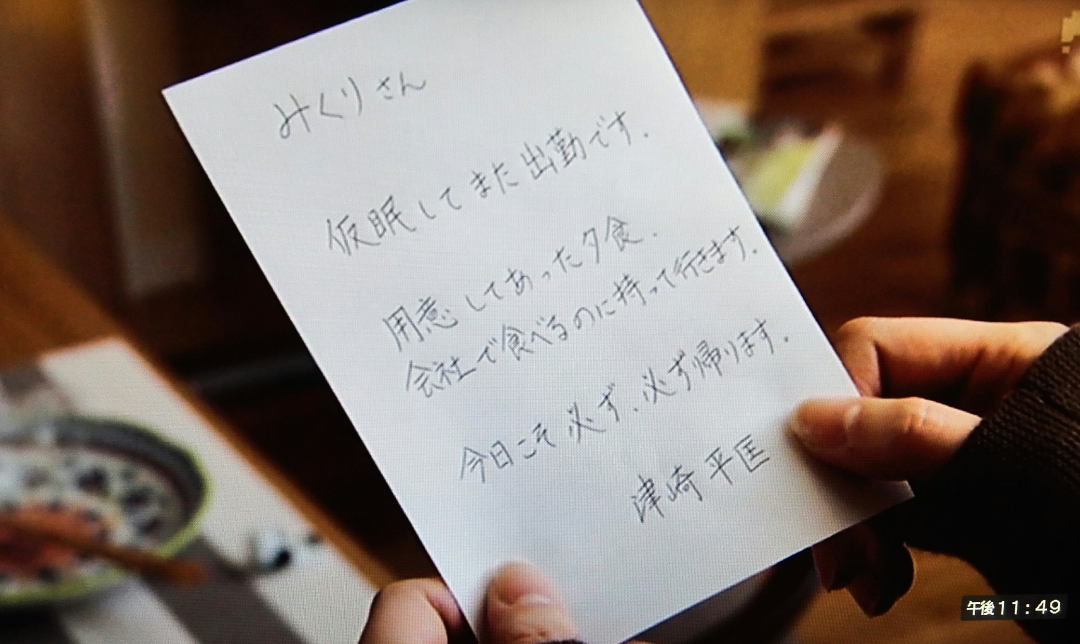 みくりさん
仮眠してまた出勤です.
用意してあった夕食.
会社で食べるのに持って行きます.
今日こそ必ず.必ず帰ります.
津崎平匡
午後11:49